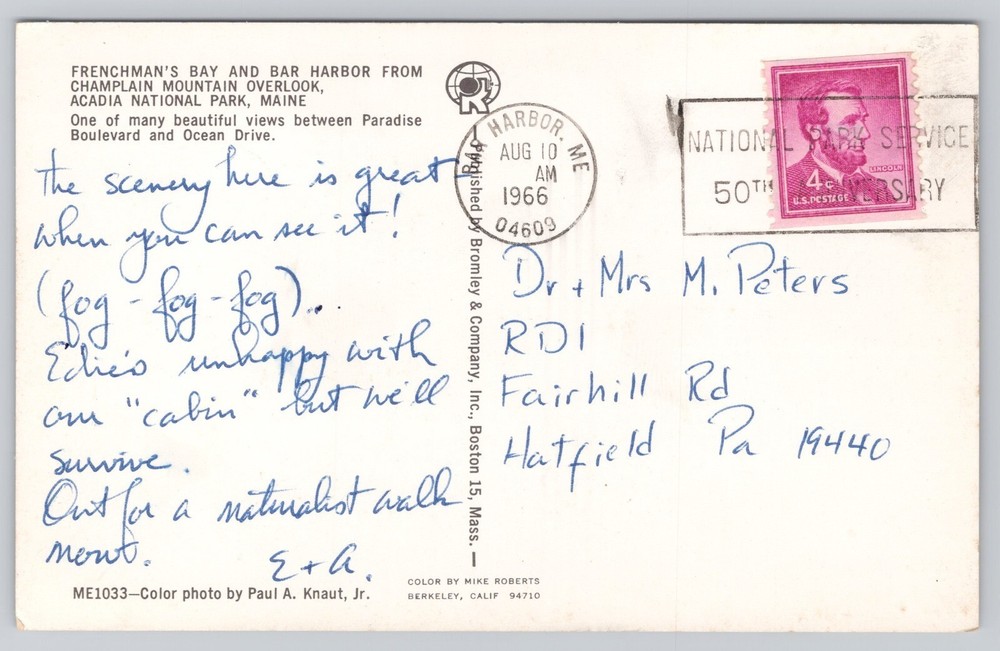 FRENCHMAN'S BAY AND BAR HARBOR FROM
CHAMPLAIN MOUNTAIN OVERLOOK,
ACADIA NATIONAL PARK, MAINE
One of many beautiful views between Paradise
Boulevard and Ocean Drive.
The scenery here is great
when you can see it!
(fog - fog - fog)..
Edie's unhappy with
our "cabin" but we'll
survive.
Out for a naturalist walk
now.
E + A.
ME1033—Color photo by Paul A. Knaut, Jr.
Published by Bromley & Company, Inc., Boston 15, Mass.
COLOR BY MIKE ROBERTS
BERKELEY, CALIF 94710
BAR HARBOR, ME
AUG 10
AM
1966
04609
NATIONAL PARK SERVICE
50TH ANNIVERSARY
LINCOLN
4¢
U.S. POSTAGE
Dr + Mrs M. Peters
RD1
Fairhill Rd
Hatfield Pa 19440